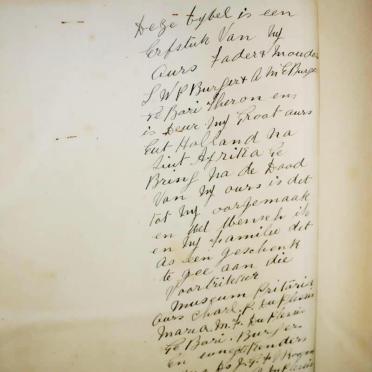 Deze bybel is een
Erfstuk Van My
Ours Fader & Mouder
S W P Burger & A M E Burger
ge Bari Theron en
is Deur My Groot ours
Eut Holland na
Suit Afrika Ge
Bring Na de Dood
Van My ours is dit
tot My oorgemaak
en het Mensch
en My Familie dit
As een geschenk
te gee aan die
Voortrikker
Museum Pritiria
ours Charl P. Du Plessis
Maria M. F. Du Plessis
Ge Bori. Burger
En